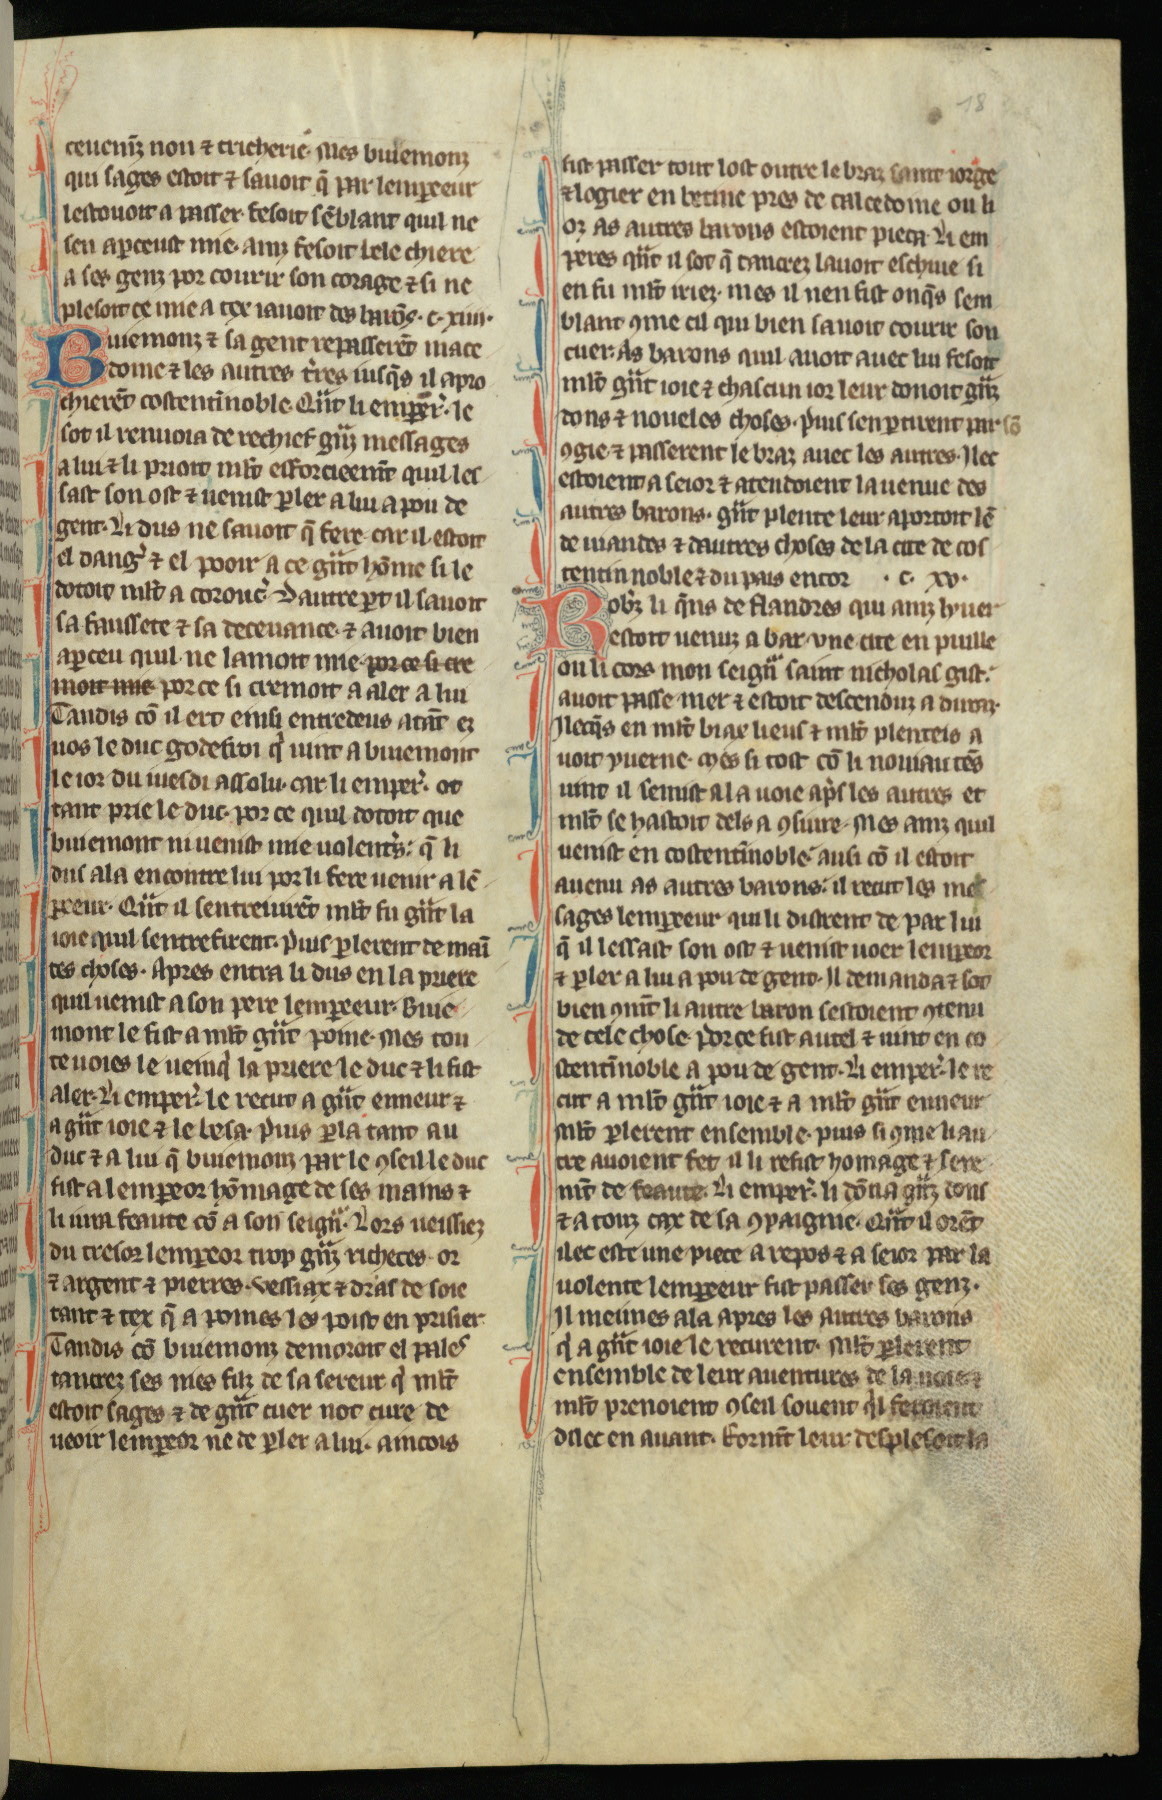 18
ceuemz non ⁊ tricherie. Mes buiemonz
qui sages estoit ⁊ sauoit q̄ par lempereeur
lestouoit a passer. fesoit sēblant quil ne
sen aperceust mie. anz fesoit bele chiere
a ses genz por courir son corage ⁊ si ne
plesoit ce mie a tex iauoit des barōs. c. xiiij.
Buiemonz ⁊ sa gent repasserēt mace
doine ⁊ les autres t̄res iusq̄s il apro
chierēt costentīnoble. Qn̄t li emper̄. le
sot il renuoia de rechief gn̄z messages
a lui ⁊ li prioit ml̄t efforcieemēt quil les
sast son ost ⁊ uenist ꝑler a lui a pou de
gent. Li dus ne sauoit q̄ fere car il estoit
el dang̾ ⁊ el pooir a ce gn̄t hōme si le
dotoit ml̄t a coroūc̾. Dautre ꝑt il sauoit
sa faussete ⁊ sa deceuance. ⁊ auoit bien
aꝑceu quil ne lamoit mie. por ce si cre
moit mie por ce si cremoit a aler a lui
Tandis cō il ert ensi entredeus atāt ez
uos le duc godefroi q̄ uint a buiemont
le ior du iuesdi assolu. car li emper̄. ot
tant prie le duc. por ce quil dotoit que
buiemont ni uenist mie uolent̾s. q̄ li
dus ala encontre lui por li fere uenir a lē
ꝑeeur. Qn̄t il sentreuirēt ml̄t fu gn̄t la
ioie quil sentrefirent. Puis ꝑlerent de maī
tes choses. Apres entra li dus en la priere
quil uenist a son pere lemꝑeeur. Buie
mont le fist a ml̄t gn̄t poine. Mes tou
te uoies le uenq̄ la priere le duc ⁊ li fist
aler. Li emper̄. le recut a gn̄t enneur ⁊
a gn̄t ioie ⁊ le besa. Puis ꝑla tant au
duc ⁊ a lui q̄ buiemonz par le ꝯseil le duc
fist a lemꝑeor hōmage de ses mains ⁊
li iura feaute cō a son seign̄. Lors ueissiez
du tresor lemꝑeor trop gn̄z richeces. or
⁊ argent ⁊ pierres. Vessiax ⁊ dras de soie
tant ⁊ tex q̄ a poines les poist en prisier
Tandis cō buiemonz demoroit el pales
tancrez ses nies filz de sa sereur q̄ ml̄t
estoit sages ⁊ de gn̄t cuer not cure de
ueoir lemꝑeor ne de ꝑler a lui. aincois
fist passer tout lost outre le braz saint iorge
⁊ logier en betine pres de calcedoine ou li
oz as autres barons estoient pieca. Li em
peres qn̄t il sot q̄ tancrez lauoit eschiue si
en fu ml̄t iriez. mes il nen fist onq̄s sem
blant ꝯme cil qui bien sauoit courir son
cuer. As barons quil auoit auec lui fesoit
ml̄t gn̄t ioie ⁊ chascun ior leur donoit gn̄z
dons ⁊ noueles choses. Puis sen ꝑtirent par sō
ꝯgie ⁊ passerent le braz auec les autres. Ilec
estoient a seior ⁊ atendoient la uenue des
autres barons. gn̄t plente leur aportoit lē
de uiandes ⁊ dautres choses de la cite de cos
tentinnoble ⁊ du pais entor . c. xv.
Robz̄ li q̄ns de flandres qui anz hyuer
estoit uenuz a bar. vne cite en puille
ou li cors mon seign̄ saint nicholas gist.
auoit passe mer ⁊ estoit descenduz a duraz.
Ilecq̄s en ml̄t biax lieus ⁊ ml̄t plenteis a
uoit yuerne. Mes si tost cō li nouiau tēs
uint il semist a la uoie ap̄s les autres et
ml̄t se hastoit dels a ꝯsiure. Mes anz quil
uenist en costentīnoble. ausi cō il estoit
auenu as autres barons. il recut les mes
sages lemꝑeeur qui li distrent de par lui
q̄ il lessast son ost ⁊ uenist uoer lemꝑeor
⁊ ꝑler a lui a pou de gent. Il demanda ⁊ sot
bien ꝯmēt li autre baron sestoient ꝯtenu
de cele chose. Por ce fist autel ⁊ uint en co
stentīnoble a pou de gent. Li emper̄. le re
cut a ml̄t gn̄t ioie ⁊ a ml̄t gn̄t enneur
Ml̄t ꝑlerent ensemble. puis si ꝯme li au
tre auoient fet il li refist homage ⁊ sere
mēt de feaute. Li emper̄. li dōna gn̄z dons
⁊ a touz cax de sa ꝯpaignie. Qn̄t il orēt
ilec este une piece a repos ⁊ a seior par la
uolente lemꝑeeur fist passer ses genz.
Il meimes ala apres les autres barons
q̄ a gn̄t ioie le recurent. Ml̄t ꝑlerent
ensemble de leur auentures de la uoie ⁊
ml̄t prenoient ꝯseil souent q̄l feroient
dilec en auant. Formēt leur desplesoit la